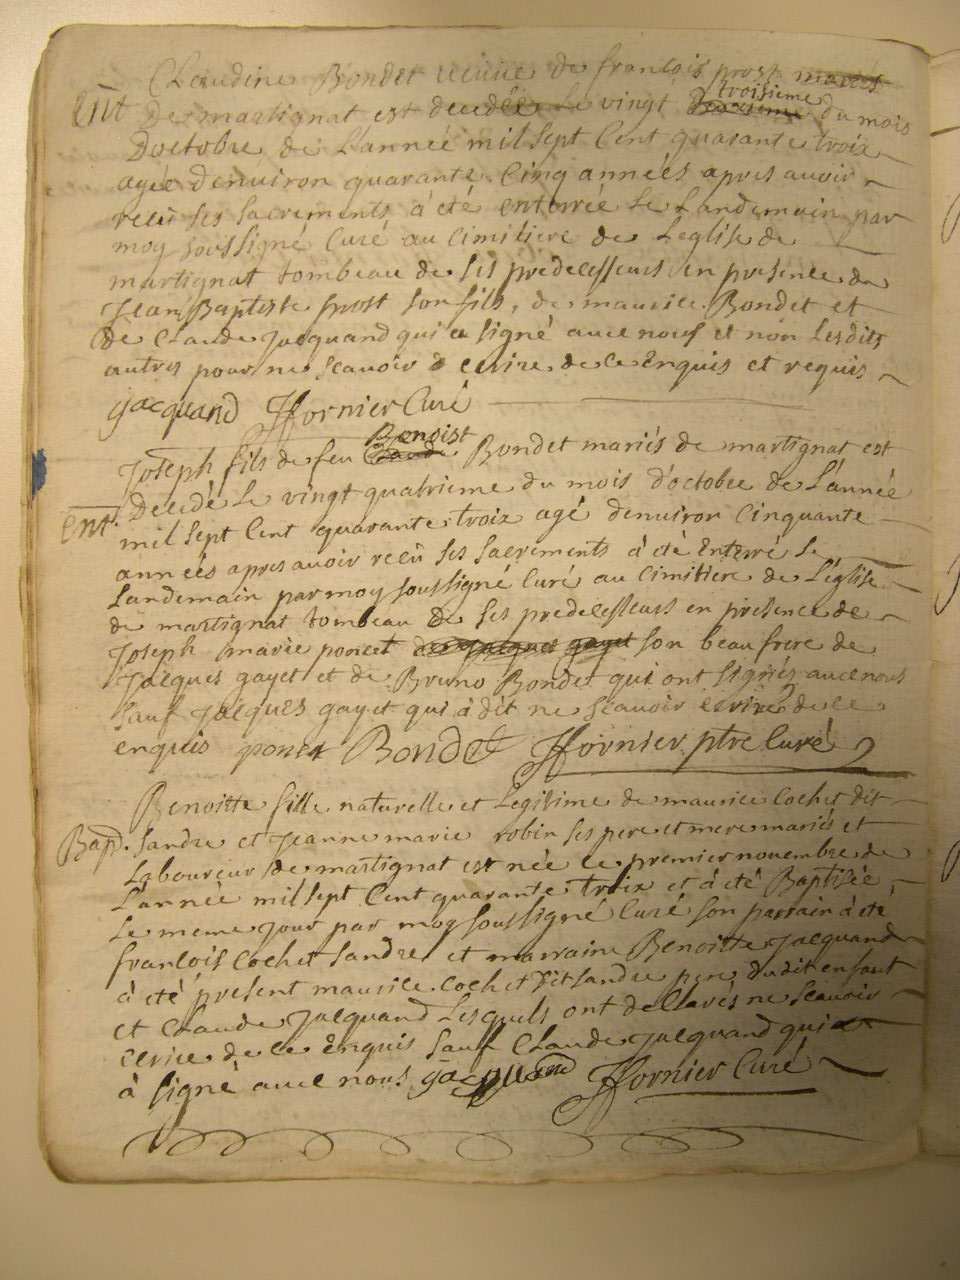 Claudine Bondet veuve de francois prost mariés
troisieme
Ent de martignat est decedée le vingt deuxieme du mois
Doctobre de L'année mil sept Cent quarante troix
agée denuiron quarante Cinq années apres auoir
recü ses sacrements à été enterrée le Landemain par
moy soussigné Curé au Cimitiere de Leglise de
martignat tombeau de ses predecesseurs en presence de
Jean Baptiste prost son fils, de maurice Bondet et
de Claude Jacquand qui a signé auec nous et non Lesdits
autres pour ne scauoir ecrire de ce Enquis et requis
Jacquand ffornier Curé
Benoist
Joseph fils de feu Claude Bondet mariés de martignat est
Ent. Decedé Le vingt quatrieme du mois d'octobre de L'année
mil sept Cent quarante troix agé denuiron Cinquante
années apres auoir recü ses sacrements à été Enterré le
Landemain par moy soussigné Curé au Cimitiere de Léglise
de martignat tombeau de ses predecesseurs en presence de
Joseph marie poncet de Jacques gayet son beau frere de
Jacques gayet et de Bruno Bondet qui ont signés auec nous
sauf Jacques gayet qui à dit ne scauoir ecrire de ce
enquis poncet Bondet ffornier ptre Curé
Benoitte fille naturelle et Legitime de maurice Cochet dit
Bap. Landre et Jeanne marie robin ses pere et mere mariés et
Laboureur de martignat est née le premier novembre de
L'année mil sept Cent quarante troix et à été Baptisée
Le meme Jour par moy soussigné Curé son parrain à été
francois Cochet Landre et marraine Benoitte Jacquand
à été present maurice Cochet dit Landre pere dudit enfant
et Claude Jacquand Lesquels ont declarés ne scauoir
ecrire de ce Enquis sauf Claude Jacquand qui
à signé auec nous Jacquand ffornier Curé